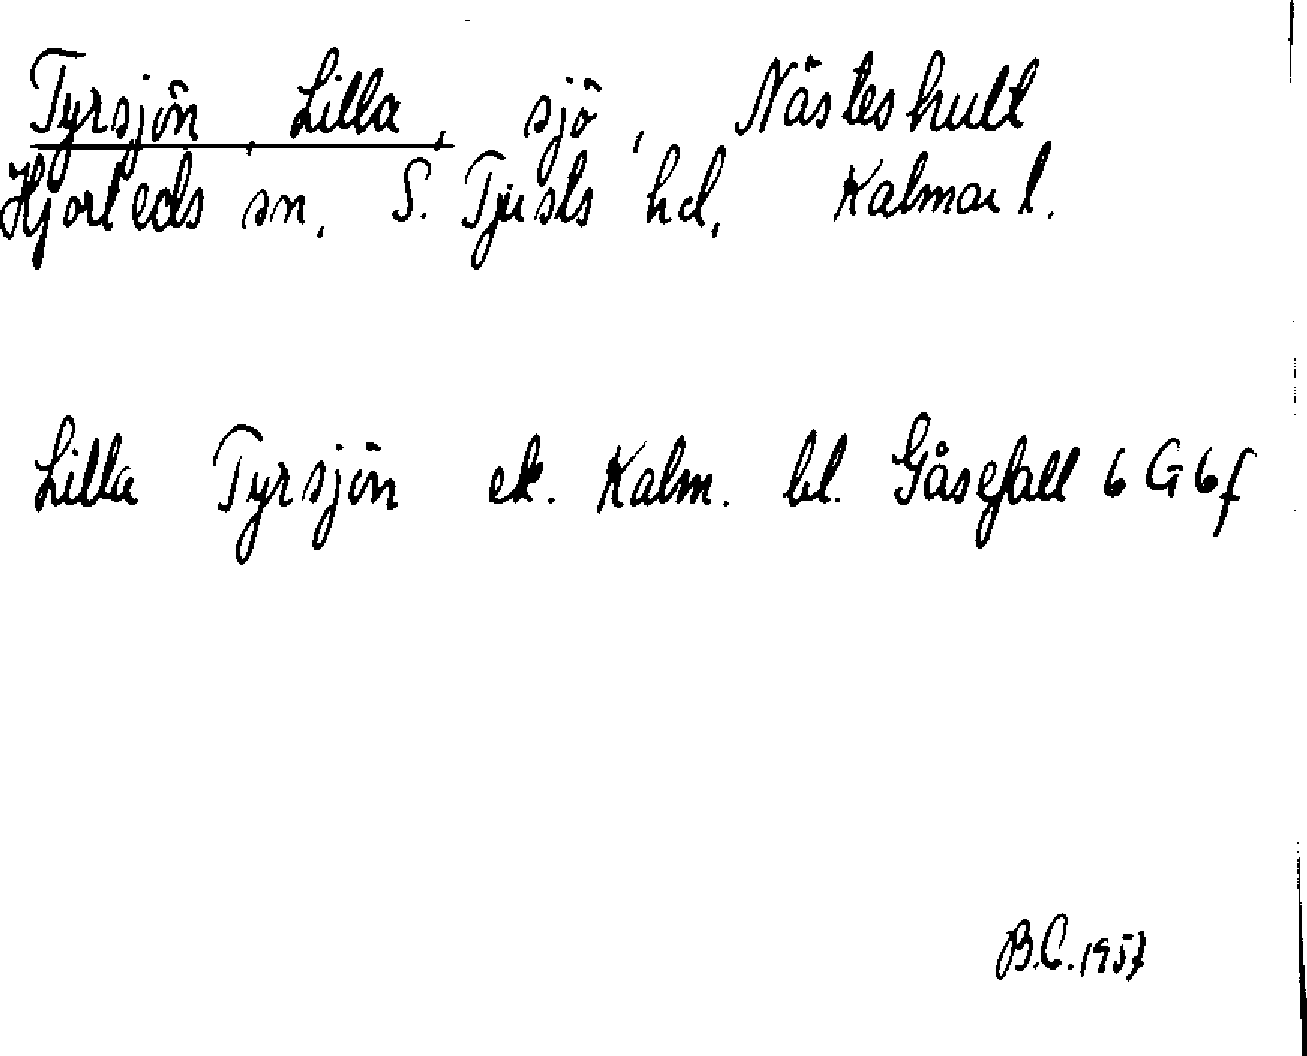 Tyrsjön, Lilla, sjö, Nästeshult
Hjorteds sn, S. Tjusts hd, Kalmar l.
Lilla Tyrsjön ek. Kalm. bl. Gåsefall 6 G 6f
B.C. 1957